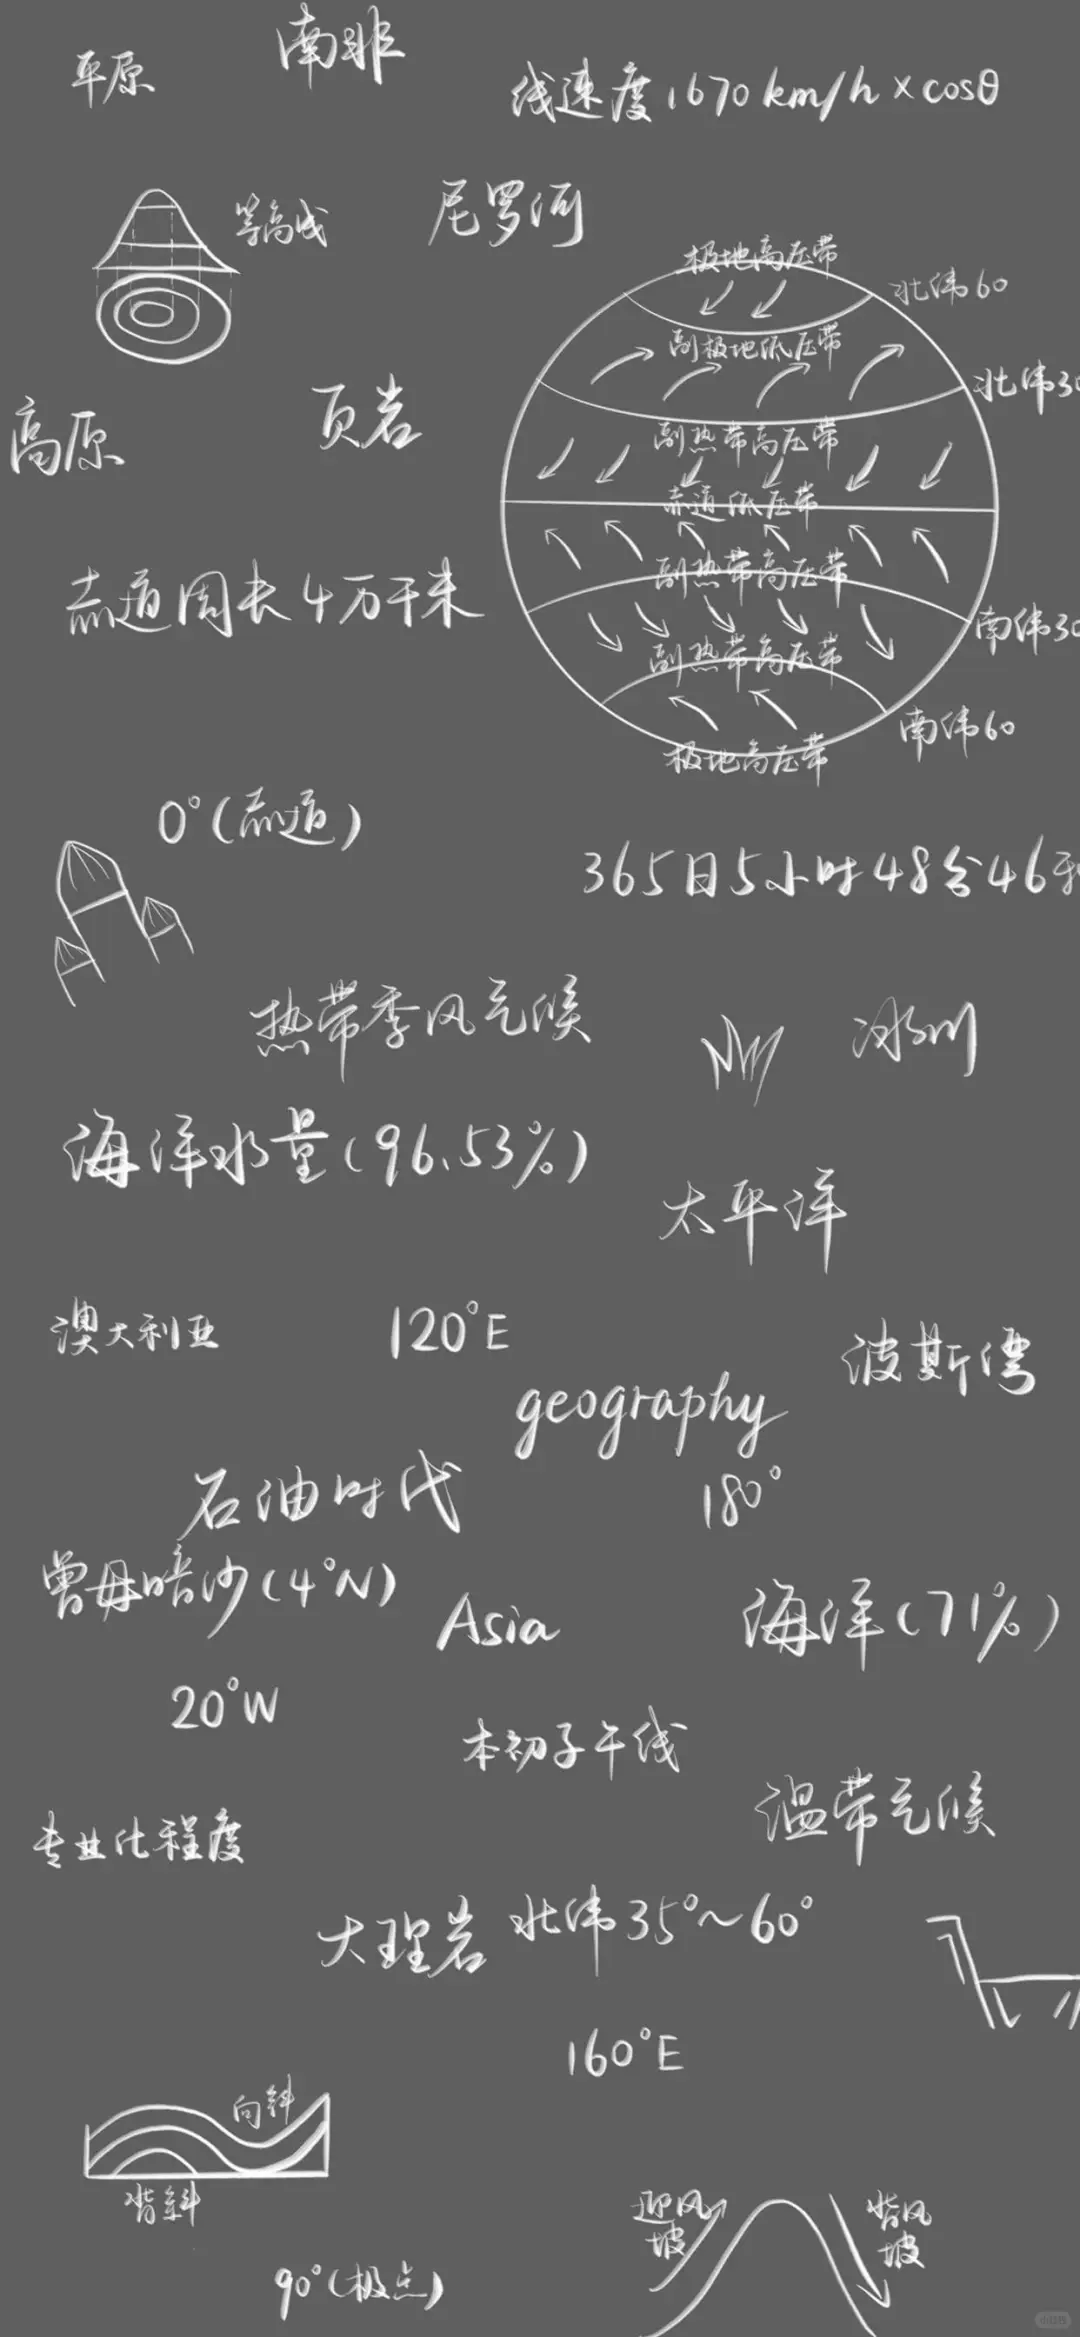 南非
平原
线速度1670km/h×cosθ
等高线
尼罗河
极地高压带
北纬60
副极地低压带
北纬30
高原
页岩
副热带高压带
赤道低压带
副热带高压带
赤道周长4万千米
南纬30
副热带高压带
南纬60
极地高压带
0°(赤道)
365日5小时48分46秒
热带季风气候
冰川
海洋水量(96.53%)
太平洋
澳大利亚
120°E
波斯湾
geography
石油时代
180°
曾母暗沙(4°N)
Asia
海洋(71%)
20°W
本初子午线
温带气候
专业化程度
大理岩
北纬35°~60°
160°E
向斜
背斜
迎风
坡
背风
坡
90°(极点)